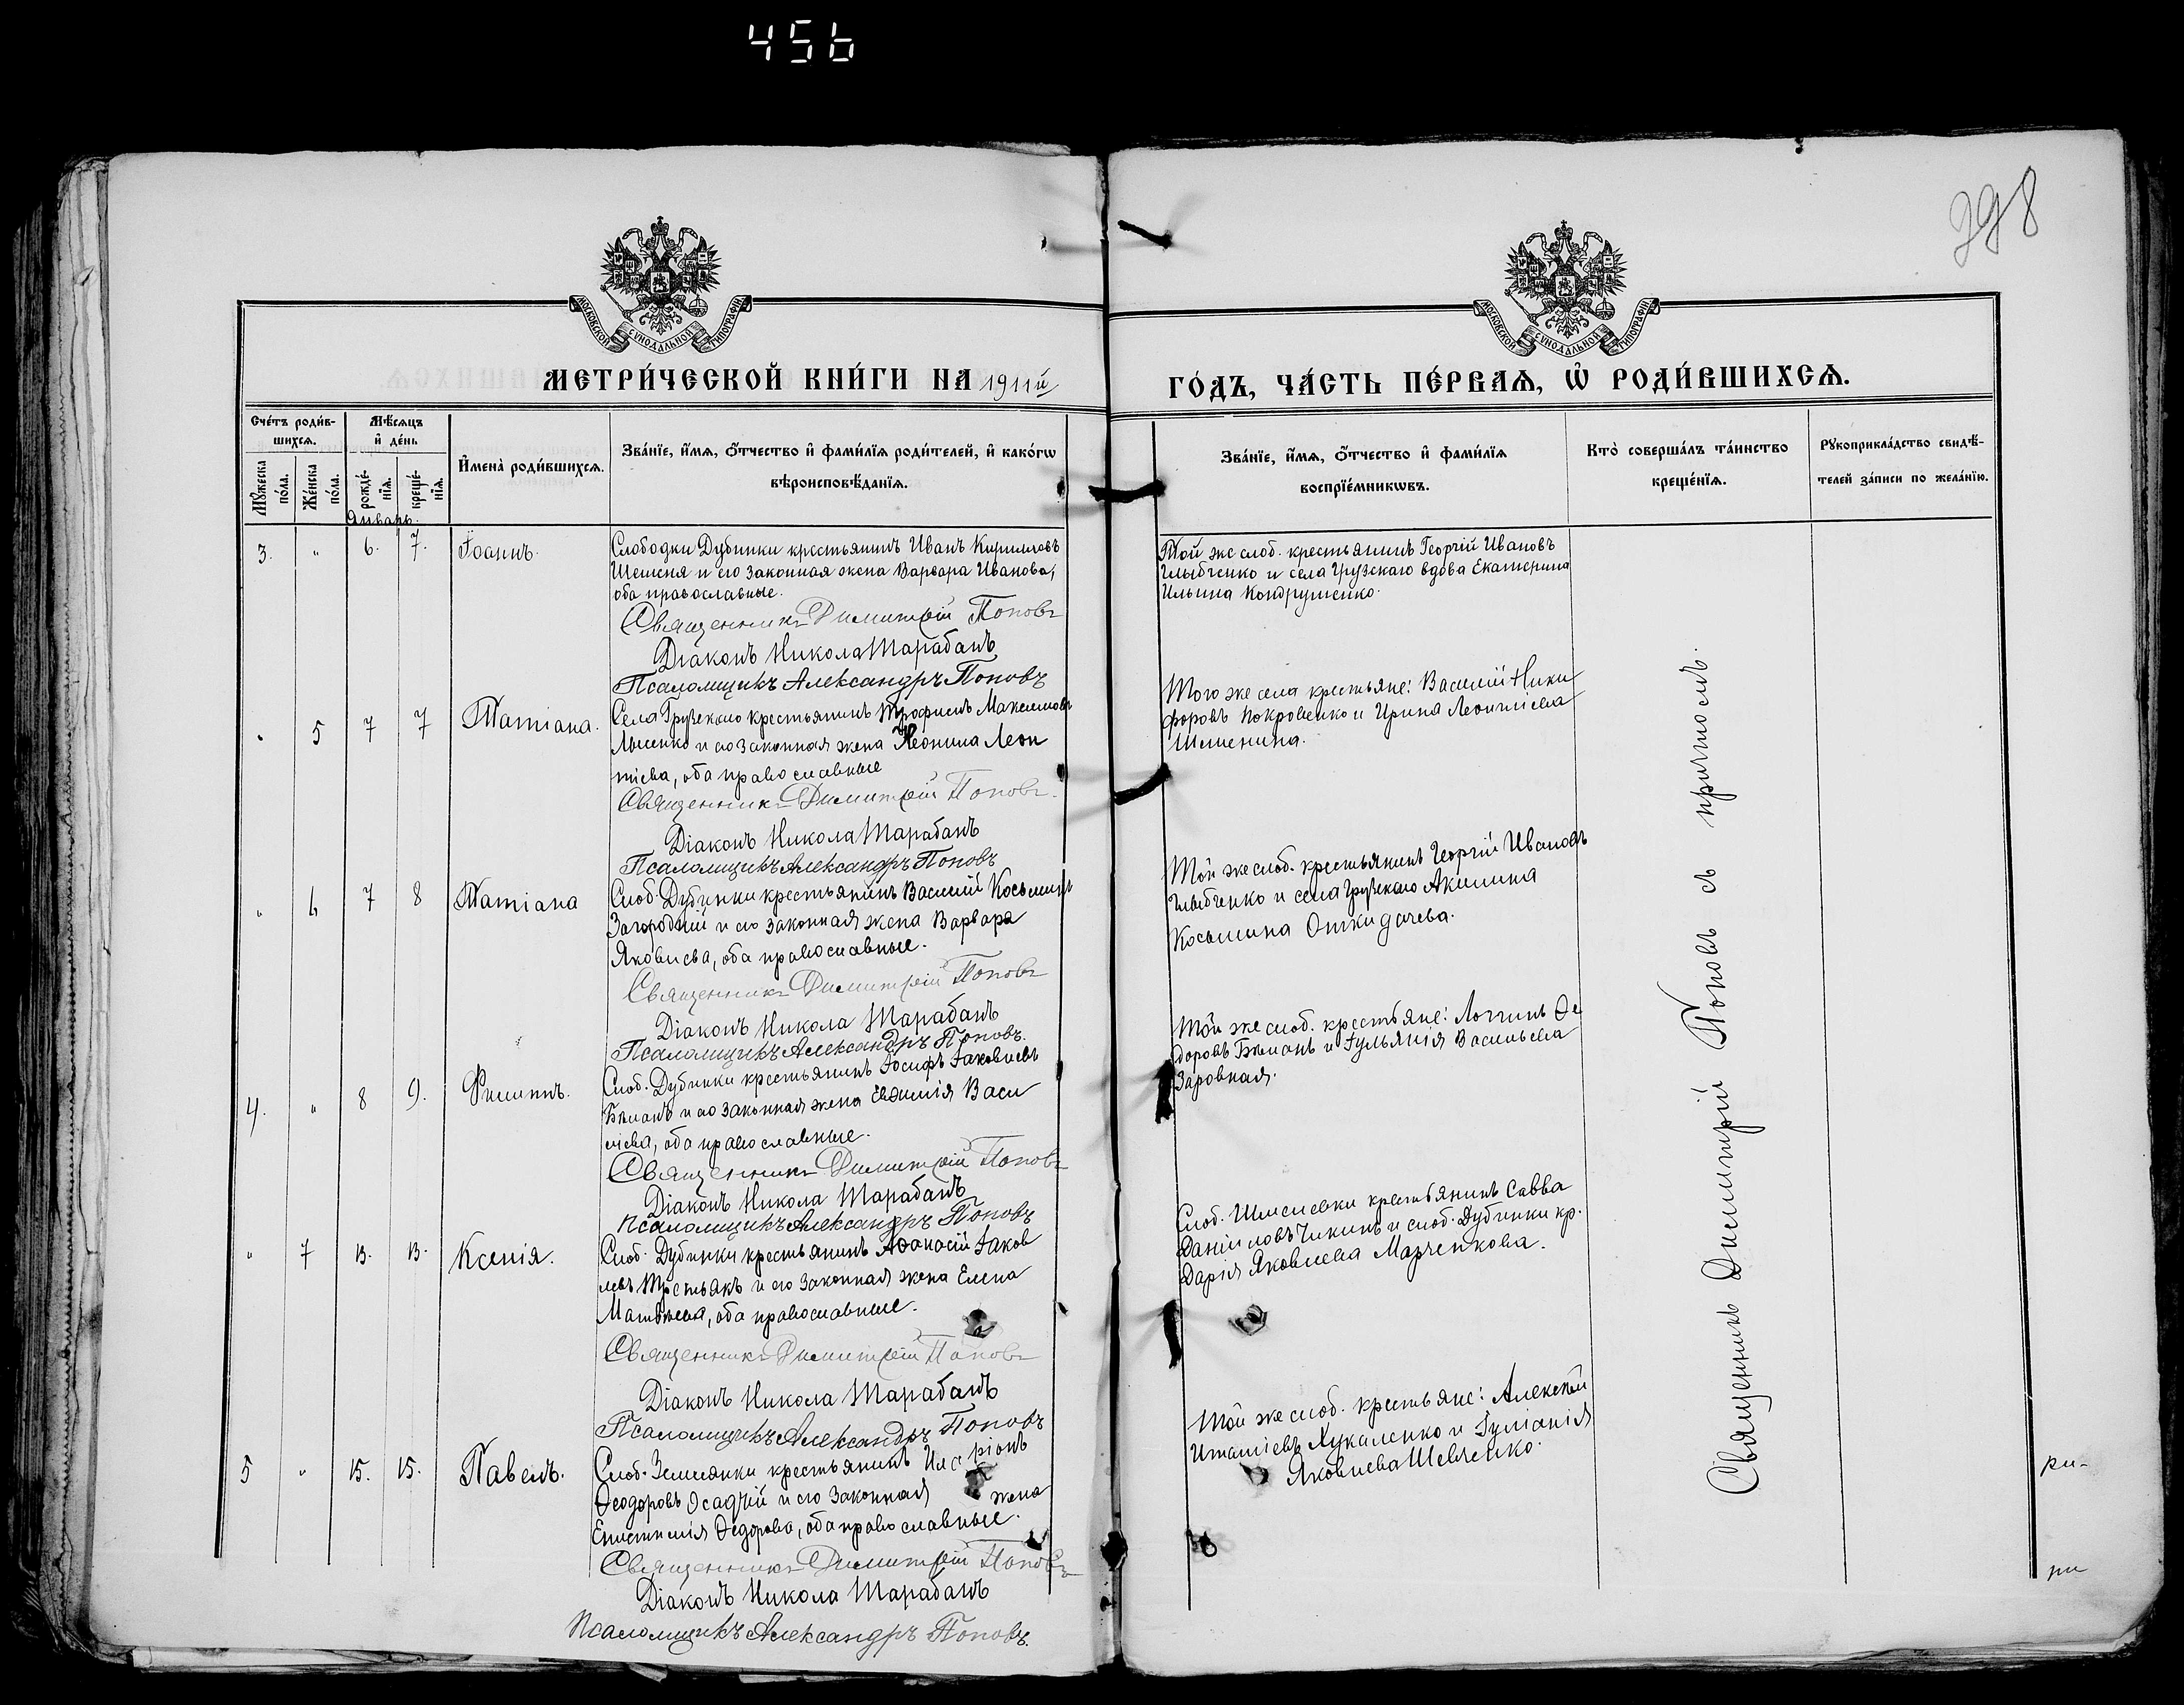 456
298
МОСКОВСКОЙ СУНОДАЛЬНОЙ ТИПОГРАФІИ
МОСКОВСКОЙ СУНОДАЛЬНОЙ ТИПОГРАФІИ
МЕТРИ́ЧЕСКОЙ КНИ́ГИ НА 1911й
ГО́ДЪ, ЧА́СТЬ ПЕ́РВАѦ, Ѡ҆ РОДИ́ВШИХСѦ.
Сче́тъ роди́в-
шихсѧ.
Мꙋ́жеска по́ла.
Же́нска по́ла.
Мѣ́сѧцъ
и҆ де́нь
рожде́-нїѧ.
креще́-нїѧ.
Январь.
И҆мена̀ роди́вшихсѧ.
Зва́нїе, и҆́мѧ, ѻ҆́тчество и҆ фами́лїѧ роди́телей, и҆ како́гѡ
вѣроисповѣ́данїѧ.
Зва́нїе, и҆́мѧ, ѻ҆́тчество и҆ фами́лїѧ
воспрїе́мникѡвъ.
Кто̀ соверша́лъ та́инство
креще́нїѧ.
Рꙋкоприкла́дство свидѣ́-
телей за́писи по жела́нїю.
3. " 6. 7. Іоаннъ.
Слободки Дубинки крестьянинъ Иванъ Кирилловъ
Шеменя и его законная жена Варвара Иванова,
оба православные.
Священникъ Димитрій Поповъ
Діаконъ Никола Тарабанъ
Псаломщикъ Александръ Поповъ
Той же слоб. крестьянинъ Георгій Ивановъ
Глыбченко и села Грузскаго вдова Екатерина
Ильина Кондрушенко.
" 5 7 7 Татіана.
Села Грузскаго крестьянинъ Трофимъ Максимовъ
Лысенко и его законная жена Неонила Леон
тіева, оба православные
Священникъ Димитрій Поповъ.
Діаконъ Никола Тарабанъ
Псаломщикъ Александръ Поповъ
Того же села крестьяне: Василій Ники
форовъ Покровенко и Ирина Леонтіева
Шеменина.
" 6 7 8 Татіана
Слоб. Дубинки крестьянинъ Василій Косьминъ
Загородній и его законная жена Варвара
Яковлева, оба православные.
Священникъ Димитрій Поповъ
Діаконъ Никола Тарабанъ
Псаломщикъ Александръ Поповъ.
Той же слоб. крестьянинъ Георгій Ивановъ
Глыбченко и села Грузскаго Акилина
Косьмина Откидачева.
4. " 8 9. Филиппъ.
Слоб. Дубинки крестьянинъ Іосифъ Іаковлевъ
Бѣманъ и его законная жена Евѳимія Васи
ліева, оба православные.
Священникъ Димитрій Поповъ
Діаконъ Никола Тарабанъ
Псаломщикъ Александръ Поповъ
Той же слоб. крестьяне: Логгинъ Ѳе
доровъ Бѣманъ и Іульянія Васильева
Заровная.
" 7 13. 13. Ксенія.
Слоб. Дубинки крестьянинъ Аѳанасій Іаков
левъ Третьякъ и его законная жена Елена
Матѳѣева, оба православные.
Священникъ Димитрій Поповъ
Діаконъ Никола Тарабанъ
Псаломщикъ Александръ Поповъ
Слоб. крестьянинъ Савва
Даніиловъ Чикинъ и слоб. Дубинки кр.
Дарія Яковлева Марченкова.
5 " 15. 15. Павелъ.
Слоб. Землянки крестьянинъ Иларіонъ
Ѳеодоровъ Осадчій и его законная жена
Епистимія Ѳедорова, оба православные.
Священникъ Димитрій Поповъ
Діаконъ Никола Тарабанъ
Псаломщикъ Александръ Поповъ.
Той же слоб. крестьяне: Алексѣй
Игнатіевъ и Іуліанія
Яковлева Шевченко.
Священникъ Димитрій Поповъ съ причтомъ.
ри-